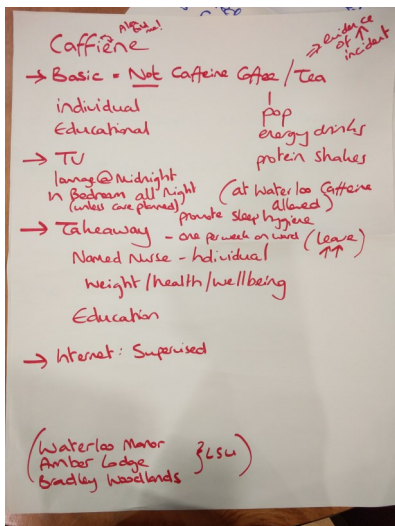 Caffiene
=> evidence of ↑ incident
→ Basic = Not Caffeine Coffee / Tea
individual
pop
Educational
energy drinks
protein shakes
→ TV
lounge @ Midnight
in Bedroom all Night
(unless care planned)
(at Waterloo Caffeine allowed)
promote sleep hygiene
→ Takeaway - one per week on ward (Leave ↑↑)
Named Nurse - Individual
weight / health / wellbeing
Education
→ Internet: Supervised
(Waterloo Manor
Amber Lodge } LSU)
Bradley Woodlands